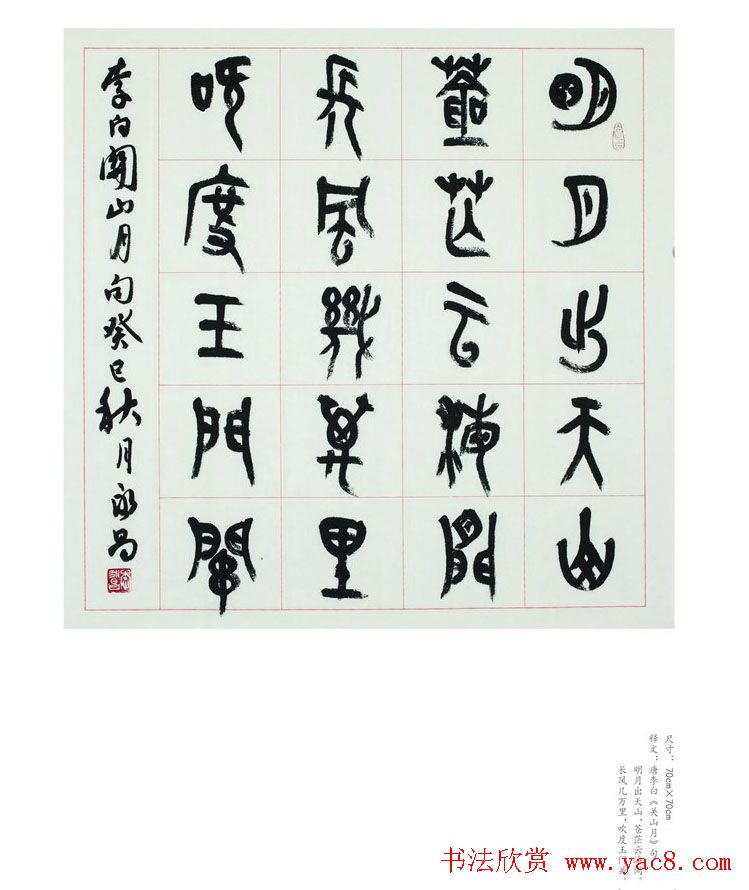 明月出天山
蒼茫云海間
長風幾萬里
吹度王門關
李白關山月句癸巳秋月永昌
尺寸：70cm×70cm
释文：唐李白《关山月》句
明月出天山，苍茫云海间。
长风几万里，吹度玉门关。
书法欣赏 www.yac8.com